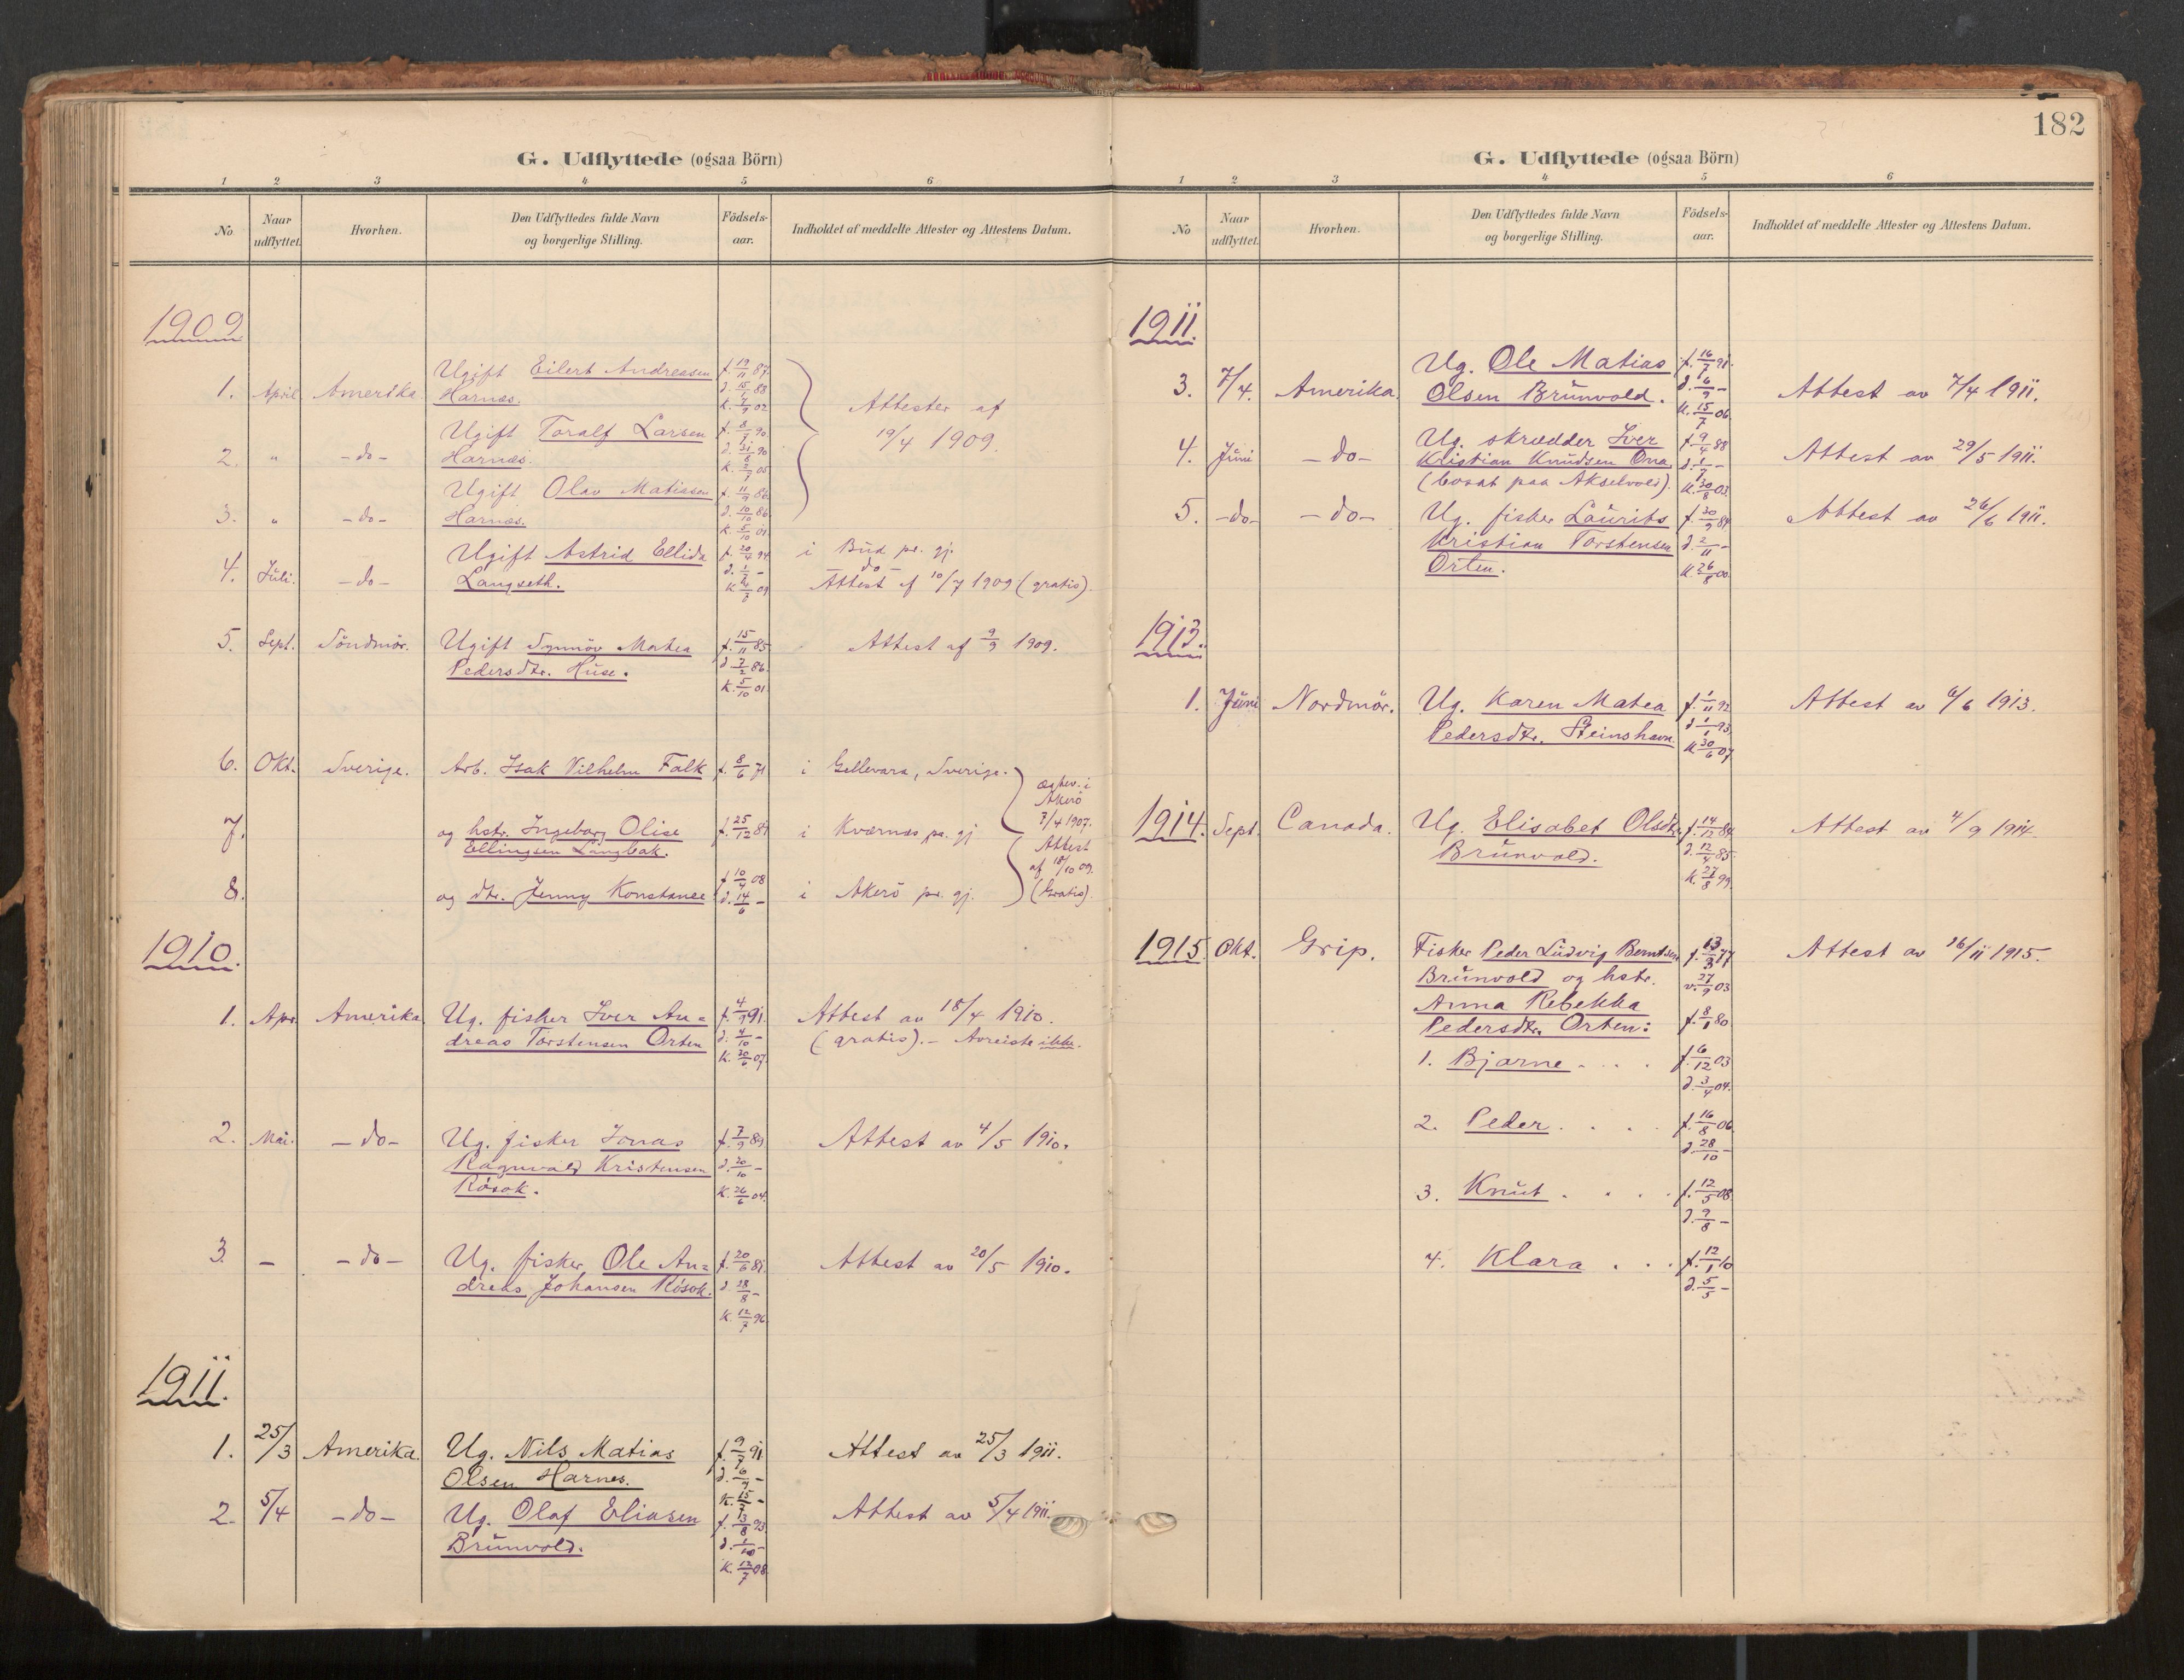 G. Udflyttede (ogsaa Börn)
1 2 3 4 5 6
No. Naar udflyttet. Hvorhen. Den Udflyttedes fulde Navn og borgerlige Stilling. Födsels-aar. Indholdet af meddelte Attester og Attestens Datum.
1909
1. April Amerika Ugift Eilert Andreasen f. 19/11 87
Harnæs. d. 15/1 88
k. 7/9 02
Attester af
19/4 1909.
2. " -do- Ugift Toralf Larsen f. 8/7 90
Harnæs. d. 31/8 90
k. 05
3. " -do- Ugift Olav Matiasen f. 11/9 86
Harnæs. d. 10/10 86
k. 5/10 01
4. Juli. -do- Ugift Astrid Ellida f. 94 i Bud pr. gj.
Langseth. d. - -do-
k. 09 Attest af 10/7 1909 (gratis).
5. Sept. Söndmör. Ugift Synnöv Matea f. 15/11 85 Attest af 9/9 1909.
Pedersdtr. Huse. d. 7/2 86
k. 5/10 01.
6. Okt. Sverige. Arb. Isak Vilhelm Falk f. 8/6 71 i Gellevara, Sverige.
ægtev. i
Akerö
7/4 1907.
7. og hstr. Ingeborg Olise f. 25/12 87 i Kværnæs pr. gj.
Ellingsen Langbak.
Attest
af 18/10 09.
(Gratis).
8. og dtr. Jenny Konstanse f. 10/4 08 i Akerö pr. gj.
d. 14/6 -
1910.
1. Apr. Amerika. Ug. fisker Iver An= f. 4/9 91. Attest av 18/4 1910.
dreas Torstensen Orten d. 4/10 - (gratis). - Avreiste ikke.
k. 30/6 07.
2. Mai. -do- Ug. fisker Jonas f. 7/9 89 Attest av 4/5 1910.
Ragnvald Kristensen d. 20/10 -
Røsok. k. 26/6 04.
3. - -do- Ug. fisker Ole An= f. 20/6 81. Attest av 20/5 1910.
dreas Johansen Røsok. d. 28/8 -
k. 12/7 96.
1911.
1. 25/3 Amerika. Ug. Nils Matias f. 9/7 91 Attest av 25/3 1911.
Olsen Harnes. d. 6/9 -
k. 15/7 -
2. 5/4 -do- Ug. Olaf Eliasen f. 13/8 93 Attest av 5/4 1911.
Brunvold. d. 1/10 -
k. 12/7 08.
182
G. Udflyttede (ogsaa Börn)
1 2 3 4 5 6
No Naar udflyttet. Hvorhen. Den Udflyttedes fulde Navn og borgerlige Stilling. Födsels-aar. Indholdet af meddelte Attester og Attestens Datum.
1911.
3. 7/4. Amerika. Ug. Ole Matias f. 16/7 91. Attest av 7/4 1911.
Olsen Brunvold. d. 6/9 -
k. 15/7 06
4. Juni -do- Ug. skrædder Iver f. 9/4 88 Attest av 29/5 1911.
Kristian Knudsen Ona d. 1/7 -
(bosat paa Akselvold). k. 30/8 03.
5. -do- -do- Ug. fisker Laurits f. 30/9 84 Attest av 26/6 1911.
Kristian Torstensen d. 2/11 -
Orten. k. 26/8 00.
1913.
1. Juni Nordmör. Ug. Karen Matea f. 1/11 92 Attest av 6/6 1913.
Pedersdtr. Steinshavn. d. 1/1 93
k. 30/6 07
1914. Sept. Canada. Ug. Elisabet Olsdtr. f. 14/12 84. Attest av 4/9 1914.
Brunvold. d. 12/4 85.
k. 27/8 99.
1915. Okt. Grip. Fisker Peder Ludvig Berntsen f. 13/3 77 Attest av 16/11 1915.
Brunvold og hstr. v. 27/9 03
Anna Rebekka
Pedersdtr. Orten: f. 8/1 80
1. Bjarne . . . f. 6/12 03
d. 3/4 04.
2. Peder . . . f. 16/8 06.
d. 28/10 -
3. Knut . . . f. 12/5 08.
d. 9/8 -
4. Klara . . . f. 12/1 10
d. 5/5 -